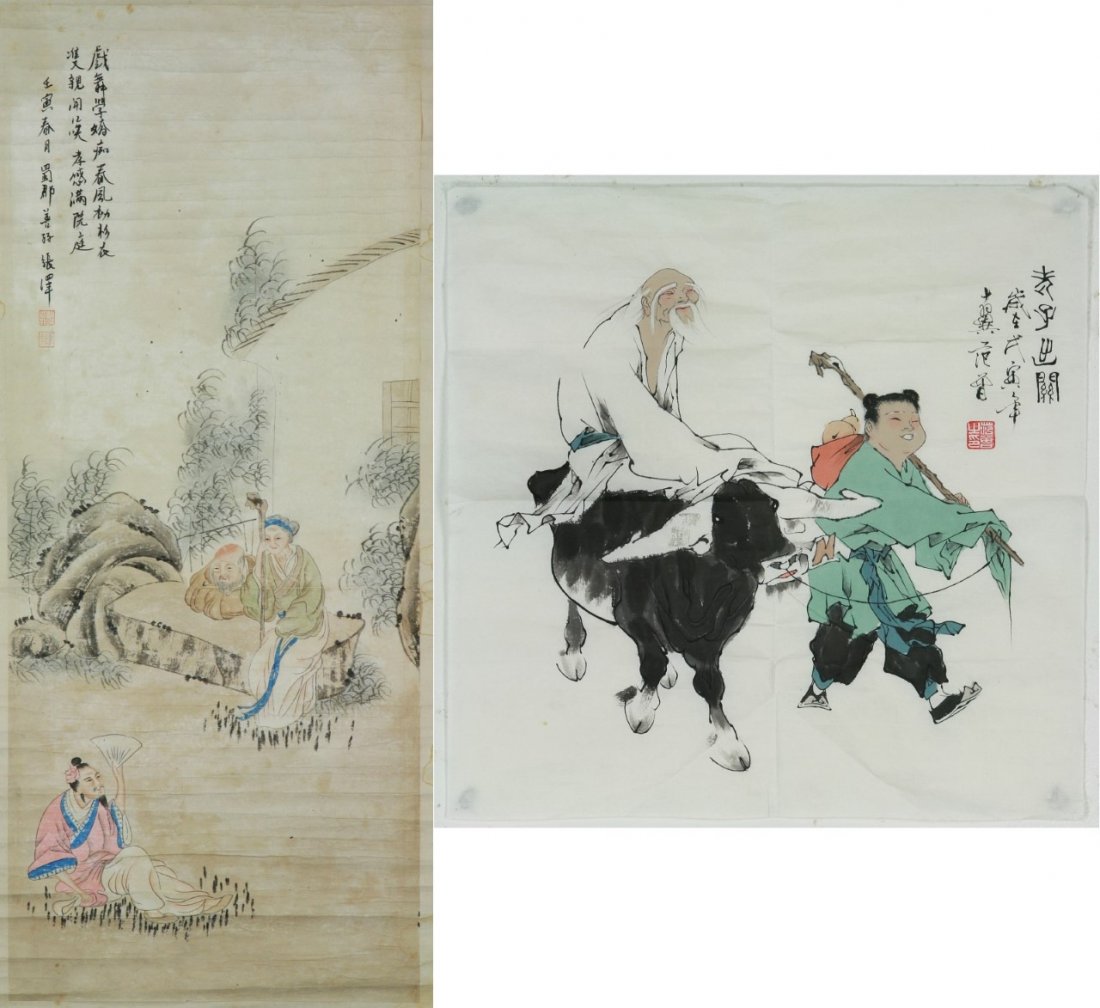 戲舞學嬌痴春風動彩衣
雙親開口笑孝感滿院庭
壬寅春月蜀郡善孖張澤
老子出關
歲在戊寅年
十翼范曾